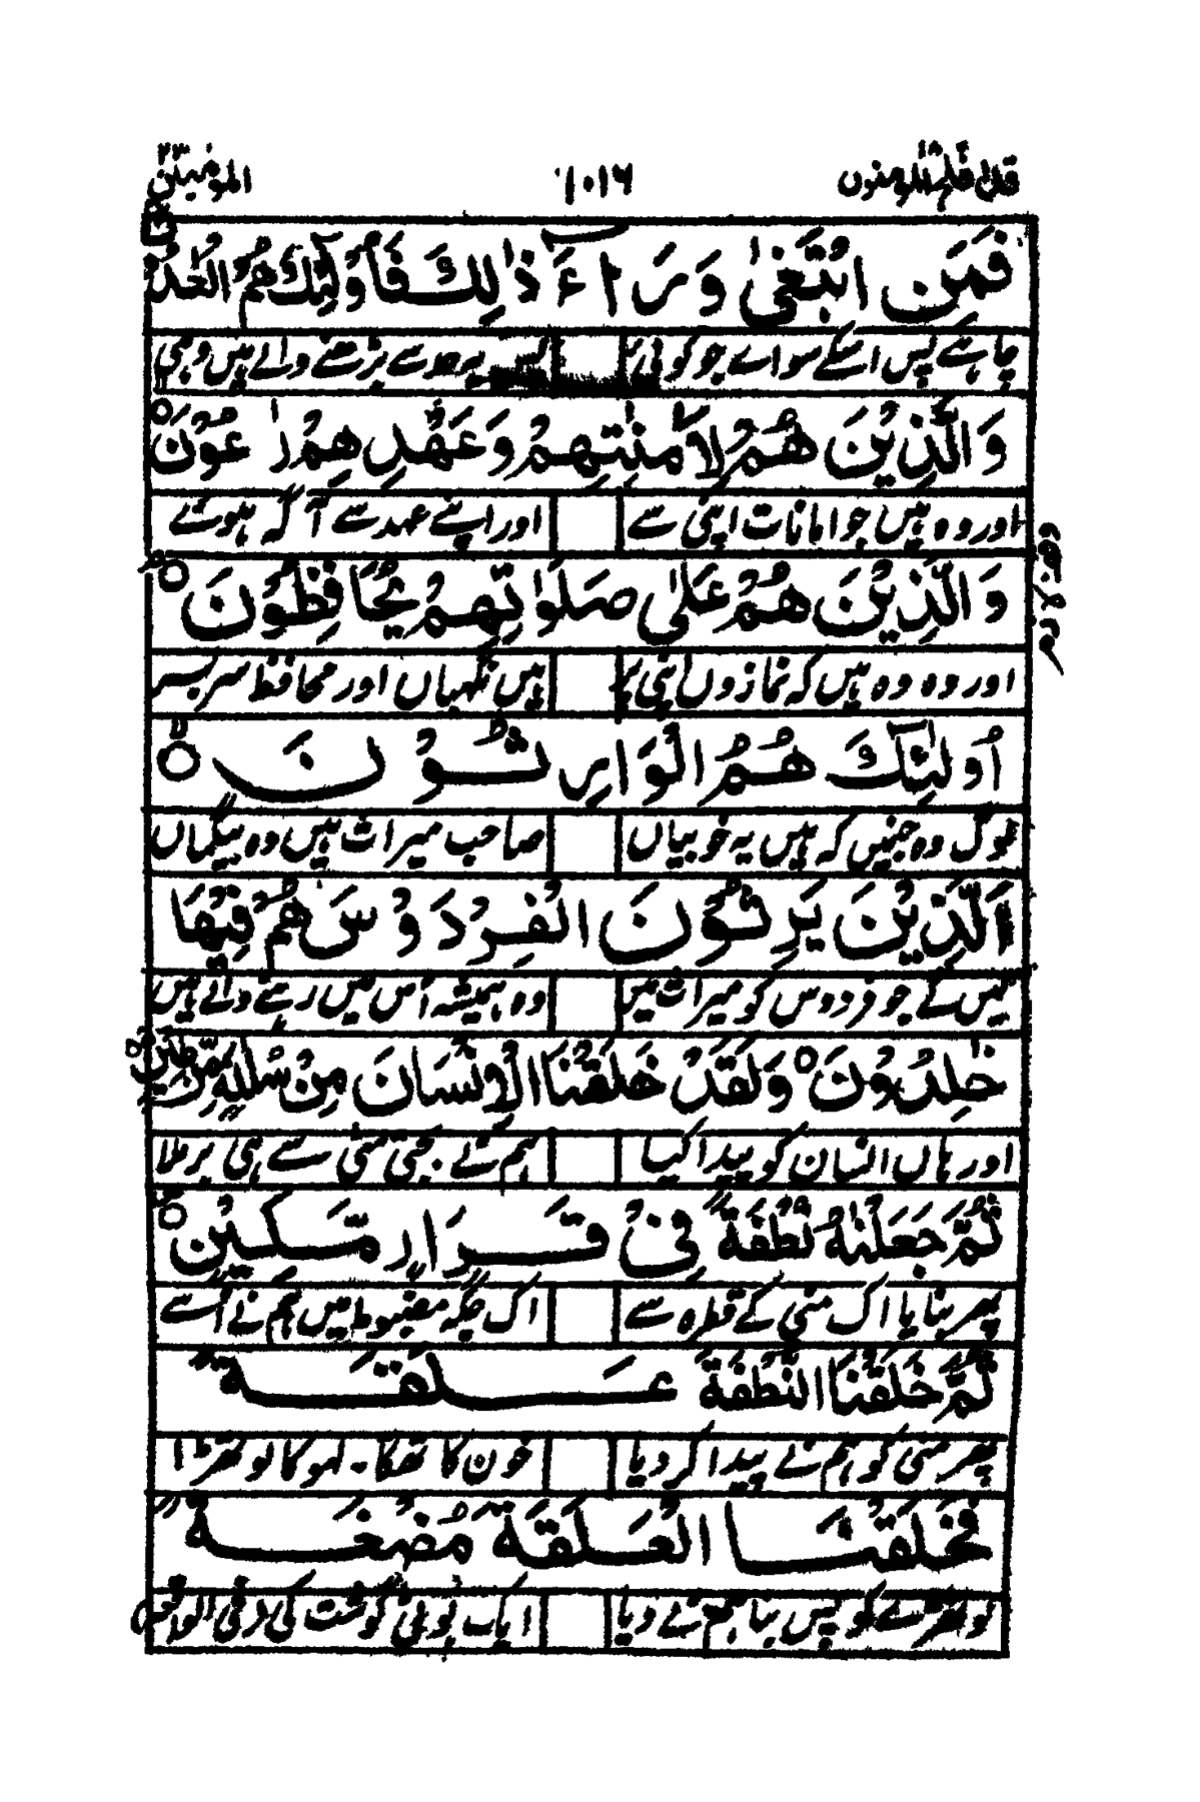 قد افلح المؤمنون ۱۸ ۱۰۱۶ المؤمنین ۲۳
فَمَنِ ابْتَغٰى وَرَآءَ ذٰلِكَ فَاُولٰٓئِكَ هُمُ الْعٰدُ
چاہے پس اسکے سوا اے جو کوئی پر یہ حد سے بڑھنے والے ہیں وہی
وَالَّذِيْنَ هُمْ لِاَمٰنٰتِهِمْ وَعَهْدِهِمْ رٰعُوْنَ
اور وہ ہیں جو امانات اپنی سے اور اپنے عہد سے آگہ ہوئے
وَالَّذِيْنَ هُمْ عَلٰى صَلَوٰتِهِمْ يُحَافِظُوْنَ
اور وہ وہ ہیں کہ نمازوں اپنی پر ہیں نگہباں اور محافظ سر بسر
اُولٰٓئِكَ هُمُ الْوَارِثُوْنَ
لوگ وہ جنہیں کہ ہیں یہ خوبیاں صاحب میراث ہیں وہ بیگماں
الَّذِيْنَ يَرِثُوْنَ الْفِرْدَوْسَ هُمْ فِيْهَا
لیں گے جو فردوس کو میراث میں وہ ہمیشہ اس میں رہنے والے ہیں
خٰلِدُوْنَ وَلَقَدْ خَلَقْنَا الْاِنْسَانَ مِنْ سُلٰلَةٍ مِّنْ طِيْنٍ
اور ہاں انسان کو پیدا کیا ہم نے مٹی سے ہی بر ملا
ثُمَّ جَعَلْنٰهُ نُطْفَةً فِىْ قَرَارٍ مَّكِيْنٍ
پھر بنایا اک منی کے قطرہ سے اک جگہ مضبوط میں ہم نے اُسے
ثُمَّ خَلَقْنَا النُّطْفَةَ عَلَقَةً
پھر منی کو ہم نے پیدا کر دیا خون کا تھکا ۔ لہو کا لوتھڑا
فَخَلَقْنَا الْعَلَقَةَ مُضْغَةً
لوتھڑے کو پس بنا ہم نے دیا ایک بوٹی گوشت کی